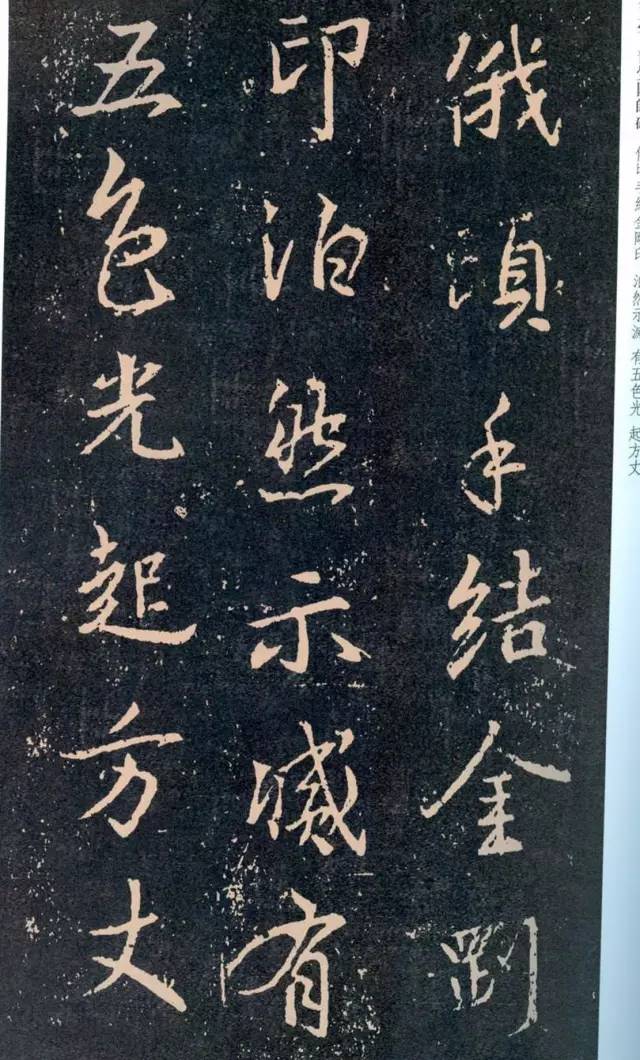 俄頃手結金剛
印泊然示滅有
五色光起方丈
泊然示滅 有五色光 起方丈